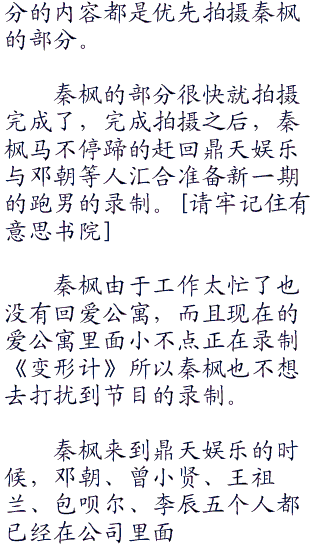 分的内容都是优先拍摄秦枫
的部分。
秦枫的部分很快就拍摄
完成了，完成拍摄之后，秦
枫马不停蹄的赶回鼎天娱乐
与邓朝等人汇合准备新一期
的跑男的录制。[请牢记住有
意思书院]
秦枫由于工作太忙了也
没有回爱公寓，而且现在的
爱公寓里面小不点正在录制
《变形计》所以秦枫也不想
去打扰到节目的录制。
秦枫来到鼎天娱乐的时
候，邓朝、曾小贤、王祖
兰、包呗尔、李辰五个人都
已经在公司里面